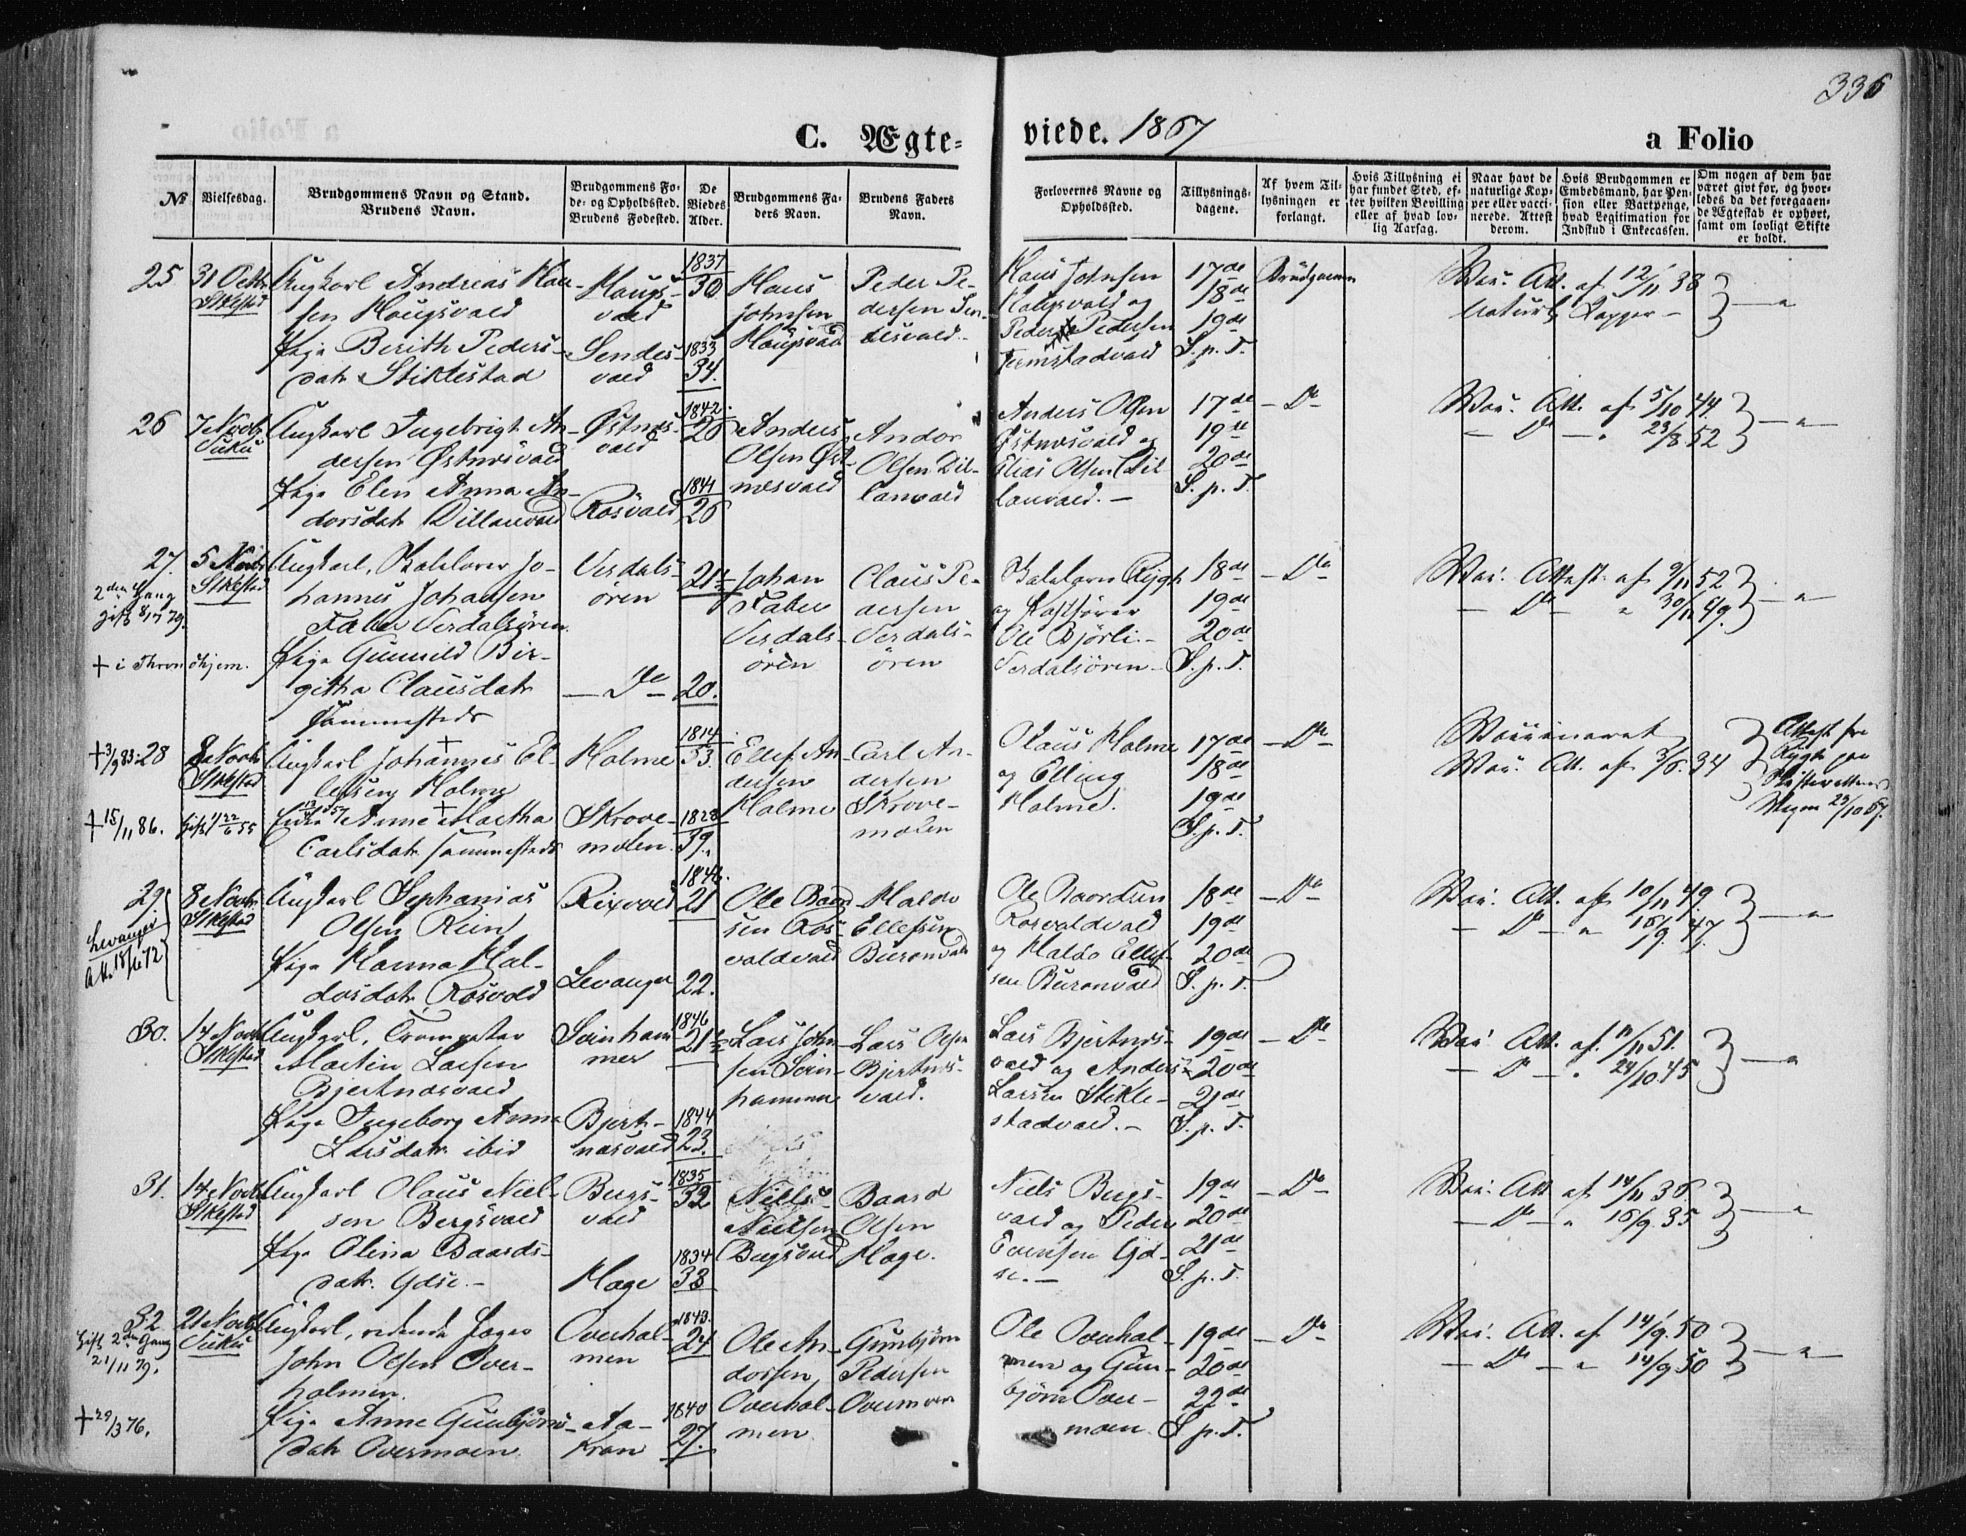 336
C. Ægte-
viede. 1867
a Folio
№
Vielsesdag.
Brudgommens Navn og Stand.
Brudens Navn.
Brudgommens Fø-
de- og Opholdssted.
Brudens Fødested.
De
Viedes
Alder.
Brudgommens Fa-
ders Navn.
Brudens Faders
Navn.
Forlovernes Navne og
Opholdssted.
Tillysnings-
dagene.
Af hvem Til-
lysningen er
forlangt.
Hvis Tillysning ei
har fundet Sted, ef-
ter hvilken Bevilling
eller af hvad lov-
lig Aarsag.
Naar havt de
naturlige Kop-
per eller vacci-
nerede. Attest
derom.
Hvis Brudgommen er
Embedsmand, har Pen-
sion eller Vartpenge,
hvad Legitimation for
Indskud i Enkecassen.
Om nogen af dem har
været givt før, og hvor-
ledes da det foregaaen-
de Ægteskab er ophørt,
samt om lovligt Skifte
er holdt.
25
31 Octbr
Stklestad
Ungkarl Andreas Han-
sen Hougsvald
Pige Berith Peders-
datr Stiklestad
Hougs-
vald
Sendes-
vald
1837
30
1833
34.
Hans
Johnsen
Hougsvald
Peder Pe-
dersen Sen-
desvald.
Hans Johnsen
Hougsvald og
Peder Pedersen
17de
18de
19de
S.p.T.
Brudgommen
Vac. Att. af 12/11 38
naturl. Kopper
26
7 Novbr
Vuku
Ungkarl Ingebrigt An-
dersen Østnesvald
Pige Elen Anna An-
dorsdatr Dillanvald
Østnes-
vald
Rosvald
1842.
1841
26
Anders
Olsen Øst-
nesvald
Andor
Olsen Dil-
lanvald
Anders Olsen
Østnesvald og
Elias Olsen Dil-
lanvald.
17de
19de
20de
S.p.T.
Do
Vac. Att. af 5/10 44.
Do 23/8 52
27.
2den Gang
gift 8/17 79.
+ i Thron dhjem.
5 Novbr
Stklestad
Ungkarl,
Johansen
Faber Verdalsøren
Pige Gunnild Bir-
githa Clausdatr
sammesteds
Verdals-
øren
Do
20.
Johan
Faber
Verdals-
øren
Claus Pe-
dersen
Verdals-
øren
og
Ole Bjørli
Verdalsøren
18de
19de
20de
S.p.T.
Do
Vac. Attest. af 9/11 52
Do 30/11 49.
+3/9 83.
28
+15/11 86.
8 Novbr
Stklestad
Ungkarl Johannes El-
lefsen Holme
Anne Martha
Carlsdatr sammesteds
Holme
Skrove-
moten.
1814
53.
1828
39.
Ellef An-
dersen
Holme
Carl An-
dersen
Skrove-
moten
Olaus Holme
og Elling
Holme.
17de
18de
19de
S.p.T.
Do
Vaccineret
Vac. Att. af 3/6. 34
Attest fra
29.
Levanger
8 Novbr
Stklestad
Ungkarl Sephanias
Olsen Rein
Pige Hanna Hal-
dosdatr Rosvold
Levanger
1846.
21
22.
Ole Baard-
sen Ros-
valdvald
Haldo
Ellefsen
Buranvald
Ole Baardsen
Rosvaldvald
og Haldo Ellef-
sen Buranvald
18de
19de
20de
S.p.T.
Do
Vac. Att. af 10/11 49.
Do 16/9. 47.
30.
14 Novbr
Stklestad
Ungkarl, Trompeter
Martin Larsen
Bjertnæsvald
Pige Ingeborg Anna
Larsdatr ibid
Svinham
mer
Bjert-
næsvald
1846
1844
23.
Lars John-
sen Svin-
hammer
Lars Olsen
Bjertnes-
vald.
Lars Bjertnes-
vald og Anders
Larsen Stikle-
stadvald.
19de
20de
21de
S.p.T.
Do
Vac. Att. af 11/11 51.
Do 24/10 45
31.
14 Novbr
Stklestad
Ungkarl Olaus Niel-
sen Bergsvald
Pige Olina Baards-
datr. Ydse.
Bergs-
vald
Hage
1835
32
1834
33
Niels
Nielsen
Bergsvald
Baard
Olsen
Hage.
Niels Bergs-
vald og Peder
Evensen Yd-
se.
19de
20de
21de
S.p.T.
Do
Vac. Att. af 14/11 36.
Do 16/9. 35
32
Gift 2den Gang
21/11 79.
+29/3 76.
21 Novbr
Vuku
Ungkarl, ridende Jæger
John Olsen Over-
holmen.
Pige Anne Gunbjørns-
datr Overmoen
Overhol-
men
Aa-
kran
1843.
24
1840
27.
Ole An-
dorsen
Overhol-
men
Gunbjørn
Pedersen
Overmoen
Ole Overhol-
men og Gun-
bjørn Over-
moen.
19de
20de
22de
S.p.T.
Do
Vac. Att. af 14/9. 50
Do 14/9 50